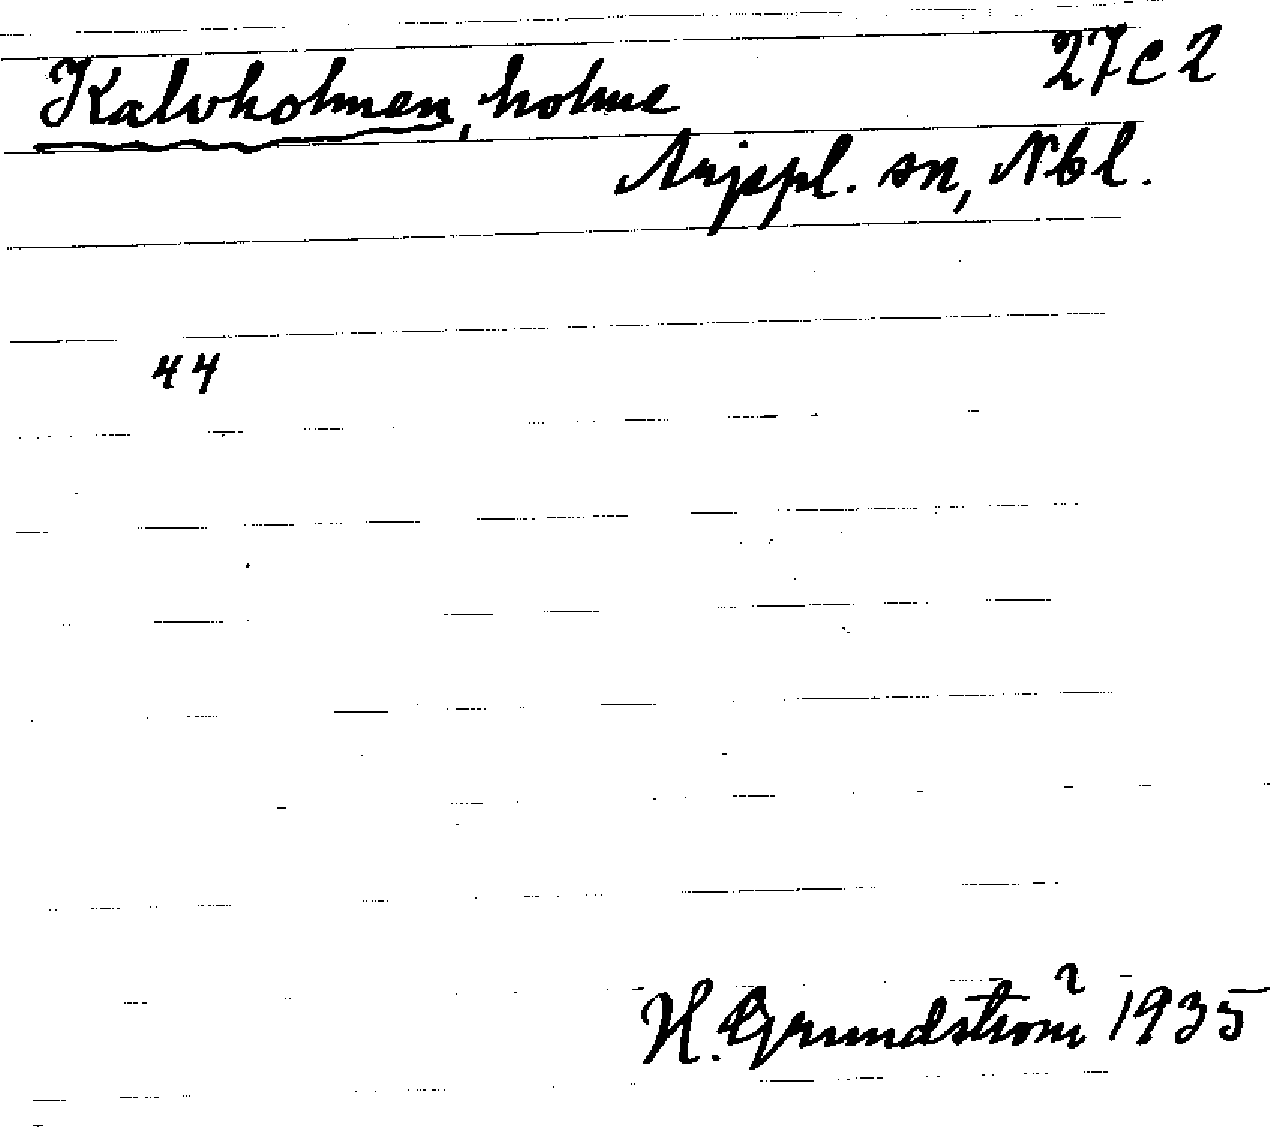 Kalvholmen, holme 27c2
Arjepl. sn, Nbl.
44
H. Grundström 1935